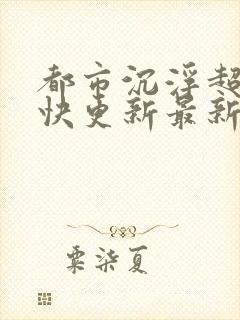 都市沉浮超
快更新最新
粟柒夏